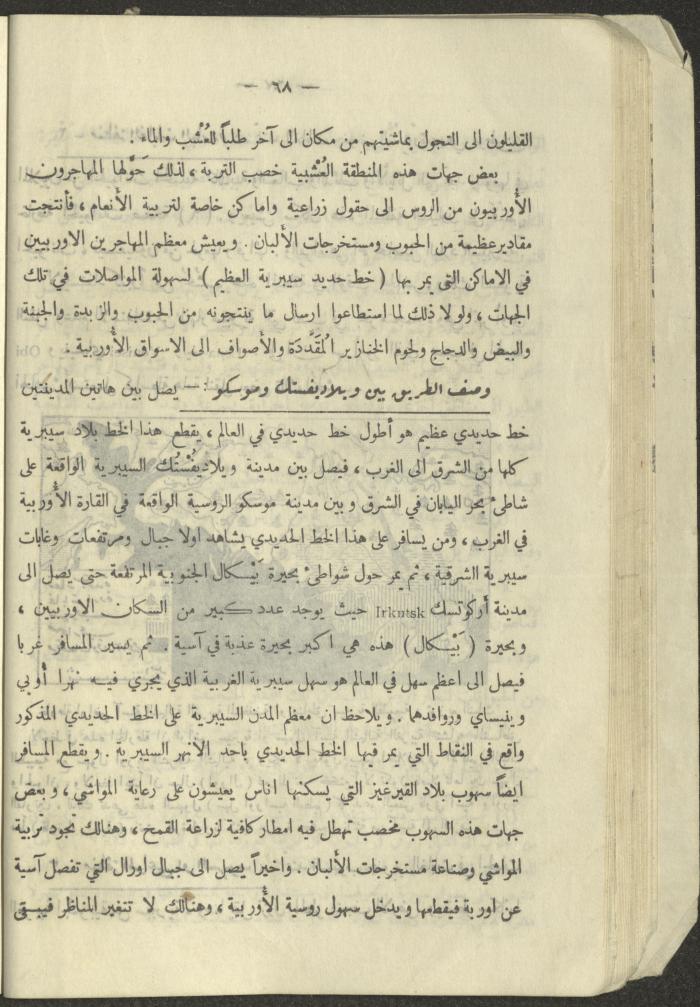 — ٦٨ —
القليلون الى التجول بماشيتهم من مكان الى آخر طلباً للعُشب والماء .
بعض جهات هذه المنطقة العُشْبية خصب التربة ، لذلك حَوَّلها المهاجرون
الأُوربيون من الروس الى حقول زراعية واماكن خاصة لتربية الأنعام ، فأنتجت
مقادير عظيمة من الحبوب ومستخرجات الألبان . ويعيش معظم المهاجرين الاوربيين
في الاماكن التى يمر بها ( خط حديد سيبرية العظيم ) لسهولة المواصلات في تلك
الجهات ، ولولا ذلك لما استطاعوا ارسال ما ينتجونه من الحبوب والزبدة والجبنة
والبيض والدجاج ولحوم الخنازير المُقَدَّدَة والأصواف الى الاسواق الأُوربية .
وصف الطريق بين ويلاديفستك وموسكو : — يصل بين هاتين المدينتين
خط حديدي عظيم هو أطول خط حديدي في العالم ، يقطع هذا الخط بلاد سيبرية
كلها من الشرق الى الغرب ، فيصل بين مدينة ويلاديفُسْتُك السيبرية الواقعة على
شاطئ بحر اليابان في الشرق وبين مدينة موسكو الروسية الواقعة في القارة الأُوربية
في الغرب ، ومن يسافر على هذا الخط الحديدي يشاهد اولا جبال ومرتفعات وغابات
سيبرية الشرقية ، ثم يمر حول شواطئ بحيرة بَيْكال الجنوبية المرتفعة حتى يصل الى
مدينة أركوتسك Irkutsk حيث يوجد عدد كبير من السكان الاوربيين ،
وبحيرة ( بَيْكال ) هذه هي اكبر بحيرة عذبة في آسية . ثم يسير المسافر غربا
فيصل الى اعظم سهل في العالم هو سهل سيبرية الغربية الذي يجري فيه نهرا أوبي
وينيساي وروافدهما . ويلاحظ ان معظم المدن السيبرية على الخط الحديدي المذكور
واقع في النقاط التي يمر فيها الخط الحديدي باحد الانهر السيبرية . ويقطع المسافر
ايضاً سهوب بلاد القيرغيز التي يسكنها اناس يعيشون على رعاية المواشي ، وبعض
جهات هذه السهوب مخصب تهطل فيه امطار كافية لزراعة القمح ، وهنالك تجود تربية
المواشي وصناعة مستخرجات الألبان . واخيراً يصل الى جبال اورال التي تفصل آسية
عن اوربة فيقطعها ويدخل سهول روسية الأُوربية ، وهنالك لا تتغير المناظر فيبقى